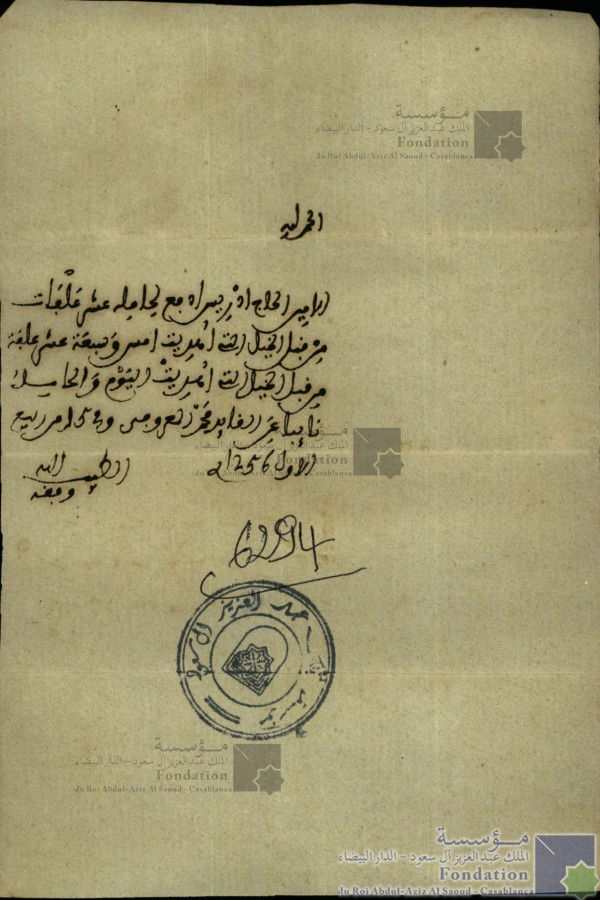 مؤسسة
الملك عبدالعزيز آل سعود - الدار البيضاء
Fondation
du Roi Abdul-Aziz Al Saoud - Casablanca
الحمد لله
الامين الحاج ادريس ادفع لحامله عشر علفات
من قبل الخيل التي امس وسبعة عشر علفة
من قبل الخيل التي اليوم والحامل
نايبا عن القايد محمد وفي من ربيع
الاول 1256
الطيب
وفقه الله
مؤسسة
الملك عبدالعزيز آل سعود - الدار البيضاء
Fondation
du Roi Abdul-Aziz Al Saoud - Casablanca
6294
عبد العزيز آل سعود
مؤسسة
الملك عبدالعزيز آل سعود - الدار البيضاء
Fondation
du Roi Abdul-Aziz Al Saoud - Casablanca
مؤسسة
الملك عبدالعزيز آل سعود - الدار البيضاء
Fondation
du Roi Abdul-Aziz Al Saoud - Casablanca